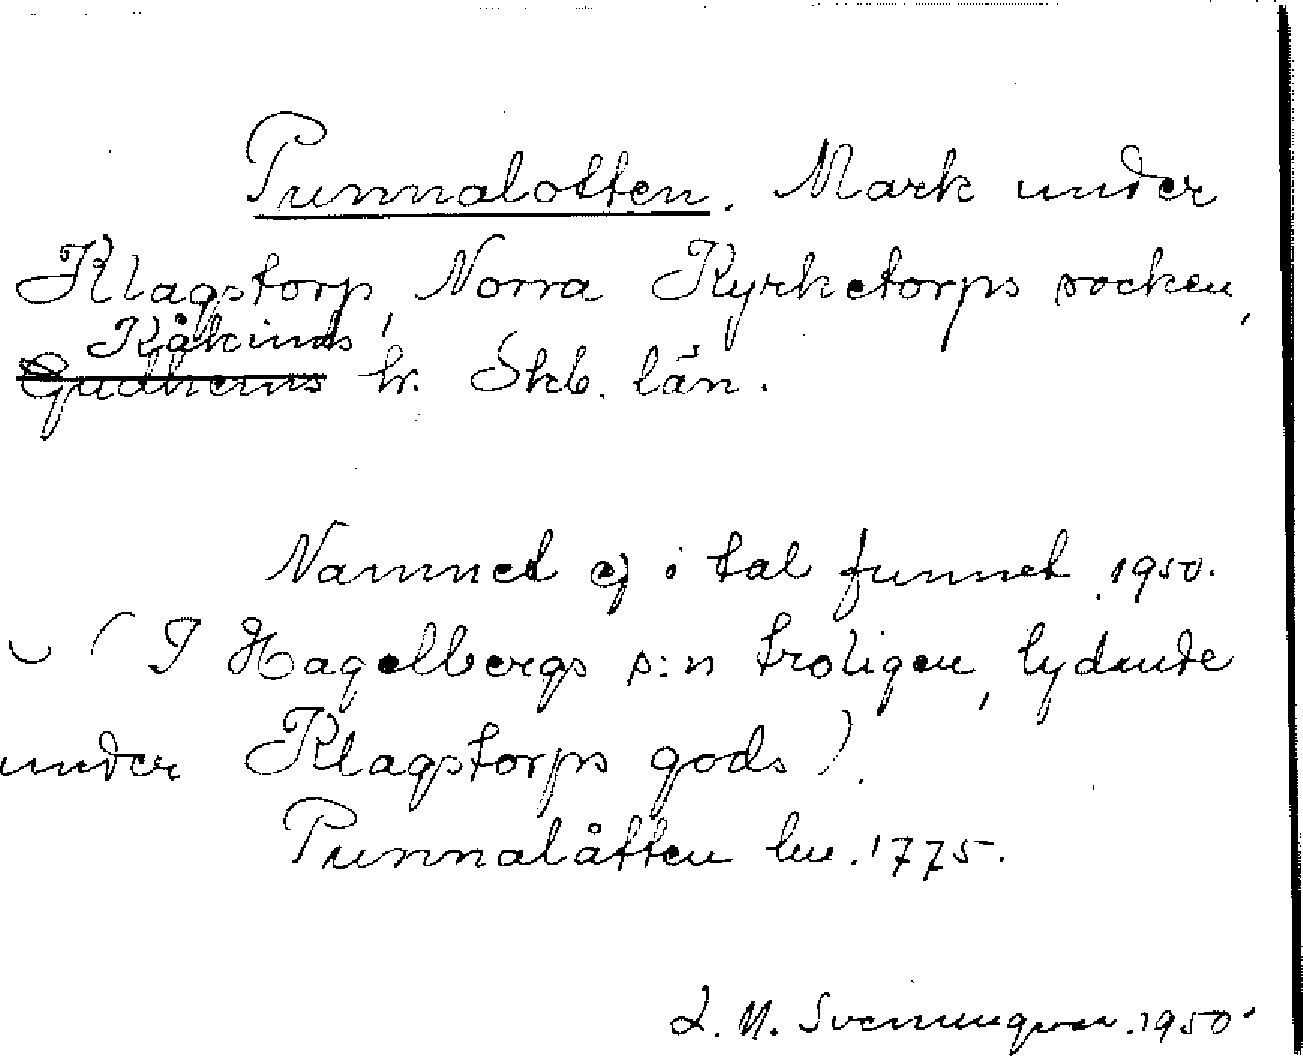 Punnalotten. Mark under
Klagstorp, Norra Kyrketorps socken,
Kåkinds
Gudhems hr. Skb. län.
Namnet ej i tal funnet 1950.
( I Hagelbergs s:n troligen, lydande
under Klagstorps gods ).
Punnalåtten lm. 1775.
L. M. Svenungsson. 1950.